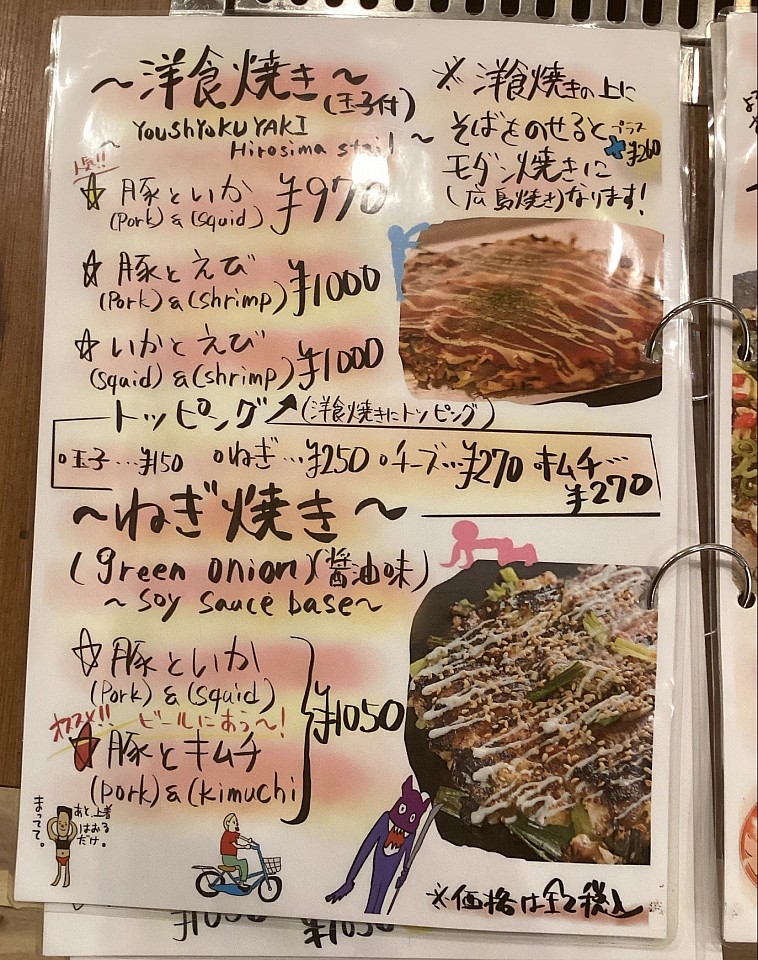 ～洋食焼き～(玉子付)
～YOUSHYOKUYAKI
Hirosima stail～
人気!!
☆豚といか ¥970
(Pork)&(Squid)
☆豚とえび ¥1000
(Pork)&(Shrimp)
☆いかとえび ¥1000
(Squid)&(shrimp)
※洋食焼きの上に
そばをのせると プラス
+¥260
モダン焼きに
(広島焼き)なります!
トッピング(洋食焼きにトッピング)
○玉子…¥150 ○ねぎ…¥250 ○チーズ…¥270 キムチ…
¥270
～ねぎ焼き～
(green onion)(醤油味)
～Soy Sauce base～
☆豚といか
(Pork)&(Squid)
¥1050
オススメ!! ビールにあう～!
★豚とキムチ
(pork)&(kimuchi)
まってて。
あと、上着
はおる
だけ。
※価格は全て税込
¥1050